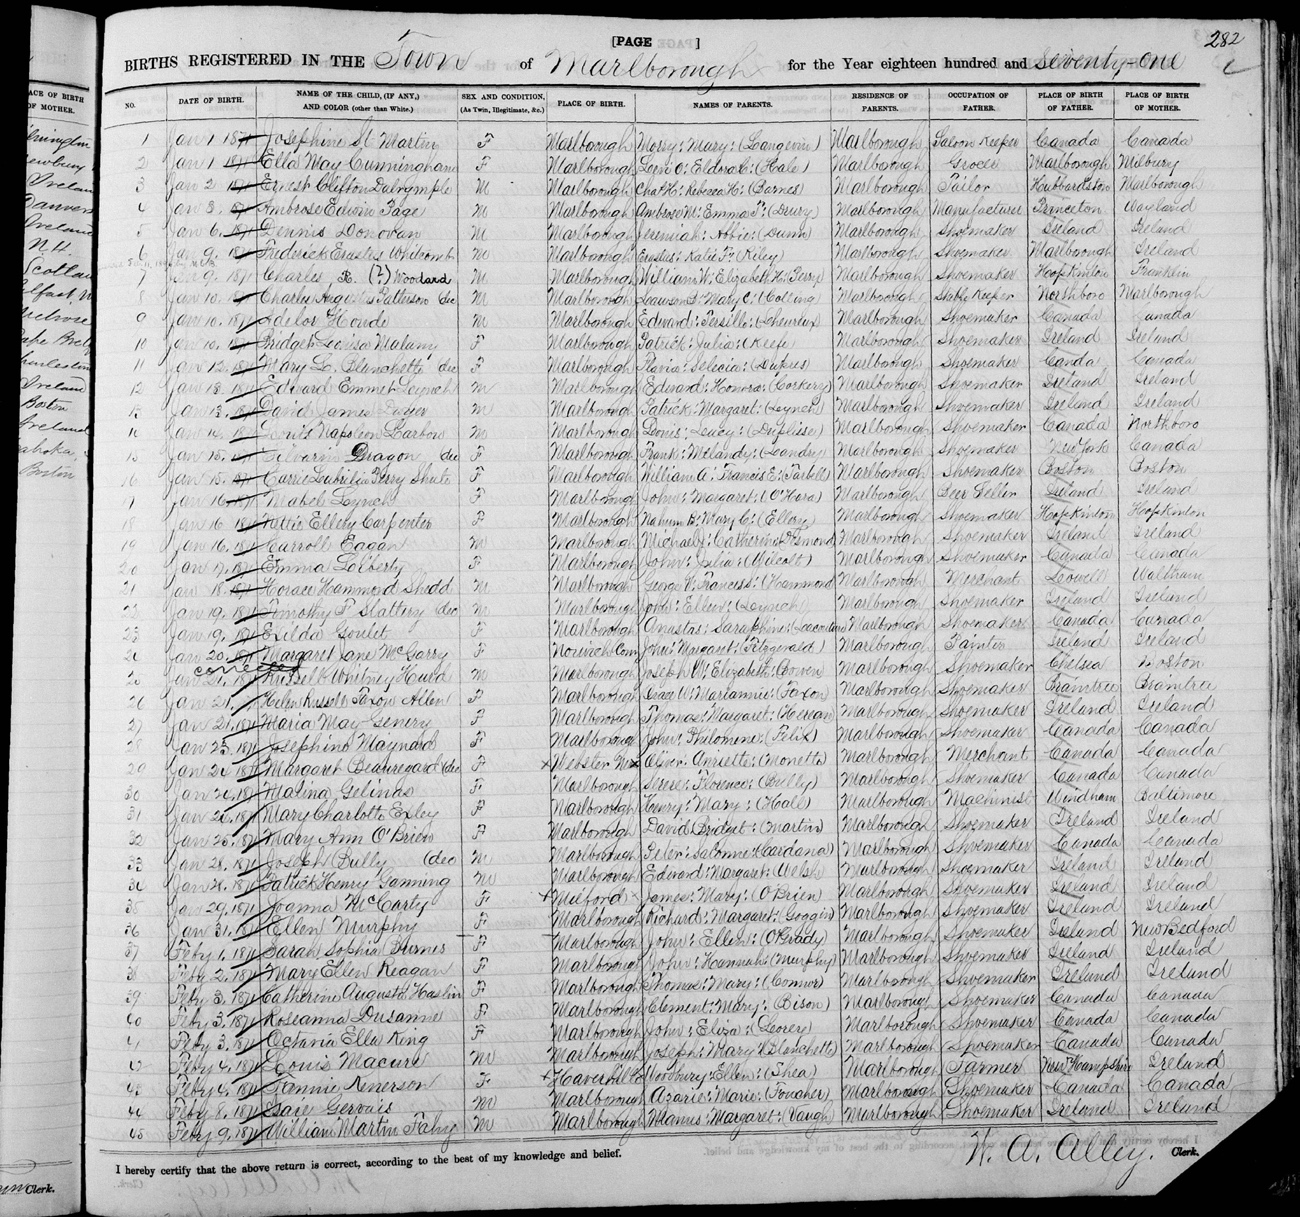 [PAGE ]
282
BIRTHS REGISTERED IN THE Town of Marlborough for the Year eighteen hundred and seventy-one
NO. DATE OF BIRTH. NAME OF THE CHILD, (IF ANY,) AND COLOR (other than White.) SEX AND CONDITION, (As Twin, Illegitimate, &c.,) PLACE OF BIRTH. NAMES OF PARENTS. RESIDENCE OF PARENTS. OCCUPATION OF FATHER. PLACE OF BIRTH OF FATHER. PLACE OF BIRTH OF MOTHER.
1 Jan 1 1871 Josephine St Martin F Marlborough Mary: (Langevin) Marlborough Saloon Keeper Canada Canada
2 Jan 1 1871 Ella May Cunningham F Marlborough Eldora: (Hale) Marlborough Grocer Marlborough Milbury
3 Jan 2 1871 Ernest Clifton Dalrymple M Marlborough Chas H: Rebecca H: (Barnes) Marlborough Tailor Hubbardston Marlborough
4 Jan 3 1871 Ambrose Edwin Page M Marlborough Ambrose M: Emma F: (Drury) Marlborough Manufacturer Princeton Wayland
5 Jan 6 1871 Dennis Donovan M Marlborough Jeremiah: Abbie: (Dunn) Marlborough Shoemaker Ireland Ireland
6 Jan 9 1871 Fredrick Erastus Whitcomb M Marlborough Erastus: Katie F: (Riley) Marlborough Shoemaker Marlborough Ireland
7 Jan 9 1871 Charles R. (?) Woodard M Marlborough William W: Elizabeth H: (Perry) Marlborough Shoemaker Hopkinton Franklin
8 Jan 10 1871 Charles Augustus Patterson (dec M Marlborough Mary C: (Colling) Marlborough Stable Keeper Northboro Marlborough
9 Jan 10 1871 Adelor Houde M Marlborough Edward: Marlborough Shoemaker Canada Canada
10 Jan 10 1871 Bridget Louisa Malany F Marlborough Patrick: Julia: (Keefe Marlborough Shoemaker Ireland Ireland
11 Jan 12 1871 Mary L. Blanchette dec F Marlborough (Dupres) Marlborough Shoemaker Canda Canada
12 Jan 13 1871 Edward Emmet Leynch M Marlborough Edward: Honora: (Corkery) Marlborough Shoemaker Ireland Ireland
13 Jan 13 1871 David James M Marlborough Patrick: Margaret: (Leynch) Marlborough Shoemaker Ireland Ireland
14 Jan 14 1871 Louis Napoleon M Marlborough Lewis: Lucy: (Duplisse) Marlborough Shoemaker Canada Northboro
15 Jan 15 1871 Dragon dec F Marlborough Frank: Melandy: (Landry) Marlborough Shoemaker New York Canada
16 Jan 15 1871 Carrie Perry Shute F Marlborough William A: Francis E: (Tarbell) Marlborough Shoemaker Boston Boston
17 Jan 16 1871 Mabel Lynch F Marlborough John: Margaret: (O'Hara) Marlborough Beer Seller Ireland Ireland
18 Jan 16 1871 Hattie Ellery Carpenter F Marlborough Nahum B: Mary C: (Ellery) Marlborough Shoemaker Hopkinton Hopkinton
19 Jan 16 1871 Carroll Eagan M Marlborough Michael: Catherine: Marlborough Shoemaker Ireland Ireland
20 Jan 17 1871 Emma Loiberty F Marlborough John: Julia: (Wilcott) Marlborough Shoemaker Canada Canada
21 Jan 18 1871 Horace Hammond Shedd M Marlborough George W: Frances: (Hammond Marlborough Merchant Lowell Waltham
22 Jan 19 1871 Timothy F Slattery (dec M Marlborough John: Ellen: (Leynch) Marlborough Shoemaker Ireland Ireland
23 Jan 19 1871 Exilda Goulet F Marlborough Anastas: Saraphine: Marlborough Shoemaker Canada Canada
24 Jan 20 1871 Margaret Jane McGarry F Norwich Conn John: Margaret: (Fitzgerald) Marlborough Painter Ireland Ireland
corrected
25 Jan 21 1871 Russell Whitney Hudd M Marlborough Joseph W: Elizabeth: (Bowen) Marlborough Shoemaker Chelsea Boston
26 Jan 21 Helen Russell Faxon Allen F Marlborough Marianne: (Faxon) Marlborough Shoemaker Braintree Braintree
27 Jan 21 1871 Maria May Genery F Marlborough Thomas: Margaret: Marlborough Shoemaker Ireland Ireland
28 Jan 23 1871 Josephine Maynard F Marlborough John: Philomene: (Felix) Marlborough Shoemaker Canada Canada
29 Jan 24 1871 Margaret Beauregard (dec F × Webster × Oliver: Anriette: (Monette) Marlborough Merchant Canada Canada
30 Jan 24 1871 Malina Gelinas F Marlborough Florence: (Bully) Marlborough Shoemaker Canada Canada
31 Jan 26 1871 Mary Charlotte Exley F Marlborough Henry: Mary: (Hall) Marlborough Machinist Windham Baltimore
32 Jan 26 1871 Mary Ann O'Brien F Marlborough David: Bridget: (Martin) Marlborough Shoemaker Ireland Ireland
33 Jan 28 1871 Joseph Bully (dec M Marlborough Peter: Salomne: (Cardana) Marlborough Shoemaker Canada Canada
34 Jan 28 1871 Patrick Henry Ganning M Marlborough Edward: Margaret: (Welsh Marlborough Shoemaker Ireland Ireland
35 Jan 29 1871 Joanna McCarty F × Milford × James: Mary: (O'Brien) Marlborough Shoemaker Ireland Ireland
36 Jan 31 1871 Ellen Murphy F Marlborough Richard: Margaret: (Goggin) Marlborough Shoemaker Ireland Ireland
37 Feby 1 1871 Sarah Sophia Burnes F Marlborough John: Ellen: (O'Grady) Marlborough Shoemaker Ireland New Bedford
38 Feby 2 1871 Mary Ellen Reagan F Marlborough John: Hannah: (Murphy) Marlborough Shoemaker Ireland Ireland
39 Feby 3 1871 Catherine Augusta F Marlborough Thomas: Mary: (Connor) Marlborough Shoemaker Ireland Ireland
40 Feby 3 1871 Roseanna Dusanne F Marlborough Clement: Mary: (Bison) Marlborough Shoemaker Canada Canada
41 Feby 3 1871 Octavia Ella King F Marlborough John: Eliza: Marlborough Shoemaker Canada Canada
42 Feby 4 1871 Louis Macure M Marlborough Joseph: Mary: (Blanchette) Marlborough Shoemaker Canada Canada
43 Feby 4 1871 Fannie Amerson F × Haverhill Woodbury: Ellen: (Shea) Marlborough Farmer New Hampshire Ireland
44 Feby 8 1871 Isaie Gervais M Marlborough Azarie: Marie: (Fougher) Marlborough Shoemaker Canada Canada
45 Feby 9 1871 William Martin Fahy M Marlborough Manus: Margaret: (Vaugh) Marlborough Shoemaker Ireland Ireland
I hereby certify that the above return is correct, according to the best of my knowledge and belief.
W. A. Alley. Clerk.
PLACE OF BIRTH OF MOTHER.
Ireland
Danvers
Ireland
N.H.
Scotland
Melrose
Charlestown
Ireland
Boston
Ireland
Boston
Clerk.